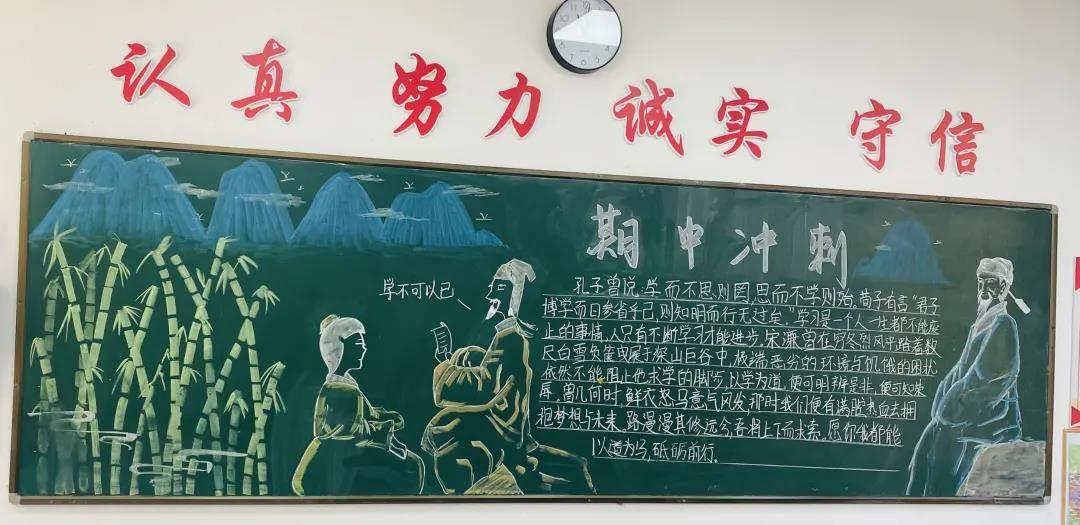 认真 努力 诚实 守信
期中冲刺
学不可以已
孔子曾说:学而不思则罔,思而不学则殆。荀子有言"君子
博学而日参省乎己,则知明而行无过矣。"学习是一个人一生都不能停
止的事情,人只有不断学习才能进步。宋濂曾在穷冬烈风中踏着数
尺白雪负箧曳屣于深山巨谷中,极端恶劣的环境与饥饿的困扰
依然不能阻止他求学的脚步,以学为道,便可明辨是非,便可知荣
辱。曾几何时,鲜衣怒马意气风发,那时我们便有满腔热血去拥
抱梦想与未来,路漫漫其修远兮,吾将上下而求索,愿你我都能
以道为马,砥砺前行。